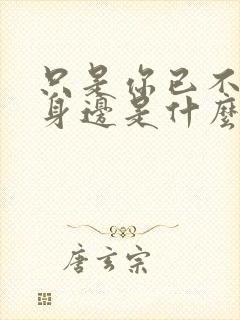 只是你已不
身邊是什麼
唐玄宗